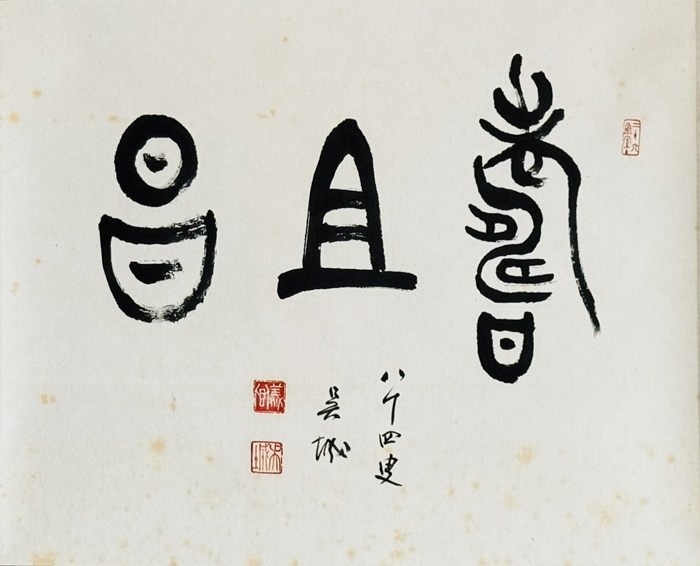 壽且昌
八十四叟
吴城